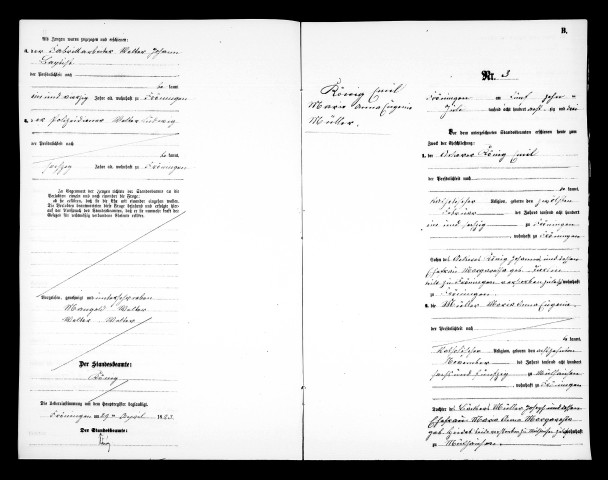 Als Zeugen waren zugezogen und erschienen:
a. der Fabrikarbeiter Walter Johann
Baptist
der Persönlichkeit nach
be kannt,
ein und vierzig Jahre alt, wohnhaft zu Fröningen
b. der Polizeidiener Walter Ludwig
der Persönlichkeit nach
be kannt,
Jahre alt, wohnhaft zu Fröningen
In Gegenwart der Zeugen richtete der Standesbeamte an die
Verlobten einzeln und nach einander die Frage:
ob sie erklären, daß sie die Ehe mit einander eingehen wollen.
Die Verlobten beantworteten diese Frage bejahend und erfolgte hier-
auf der Ausspruch des Standesbeamten, daß er sie nunmehr kraft des
Gesetzes für rechtmäßig verbundene Eheleute erkläre.
Vorgelesen, genehmigt und unterschrieben
Walter
Walter Walter
Der Standesbeamte:
König
Die Uebereinstimmung mit dem Hauptregister beglaubigt.
Fröningen am 29. April 1883
Der Standesbeamte:
König
B.
König Emil
Maria Anna Eugenia
Müller.
Nr. 3
Fröningen am fünf zehn
Juli tausend acht hundert acht zig und drei
Vor dem unterzeichneten Standesbeamten erschienen heute zum
Zweck der Eheschließung:
1. der Ackerer König Emil
der Persönlichkeit nach
be kannt,
katholischer Religion, geboren den zwölften
Februar des Jahres tausend acht hundert
ein und sechzig zu Fröningen
, wohnhaft zu Fröningen
Sohn des Ackerers König Johann und dessen
Ehefrau Margaretha geb.
zu Fröningen
2. die Müller Maria Anna Eugenia
der Persönlichkeit nach
be kannt,
katholischer Religion, geboren den achtzehnten
November des Jahres tausend acht hundert
sechs und fünfzig zu Mülhausen
, wohnhaft zu Fröningen
Tochter des Müller Joseph und dessen
Ehefrau Maria Anna Margaretha
geb.
zu Mülhausen